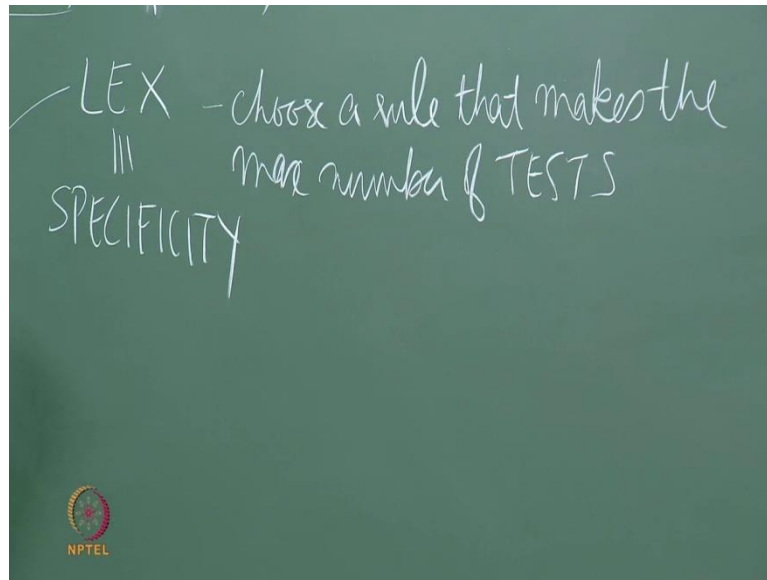 LEX - choose a rule that makes the
||| max number of TESTS
SPECIFICITY
NPTEL